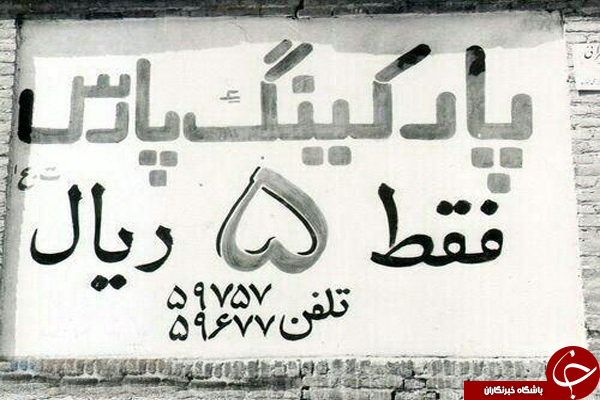 پارکینگ پارس
فقط ۵ ریال
تلفن ۵۹۷۵۷
۵۹۶۷۷
باشگاه خبرنگاران